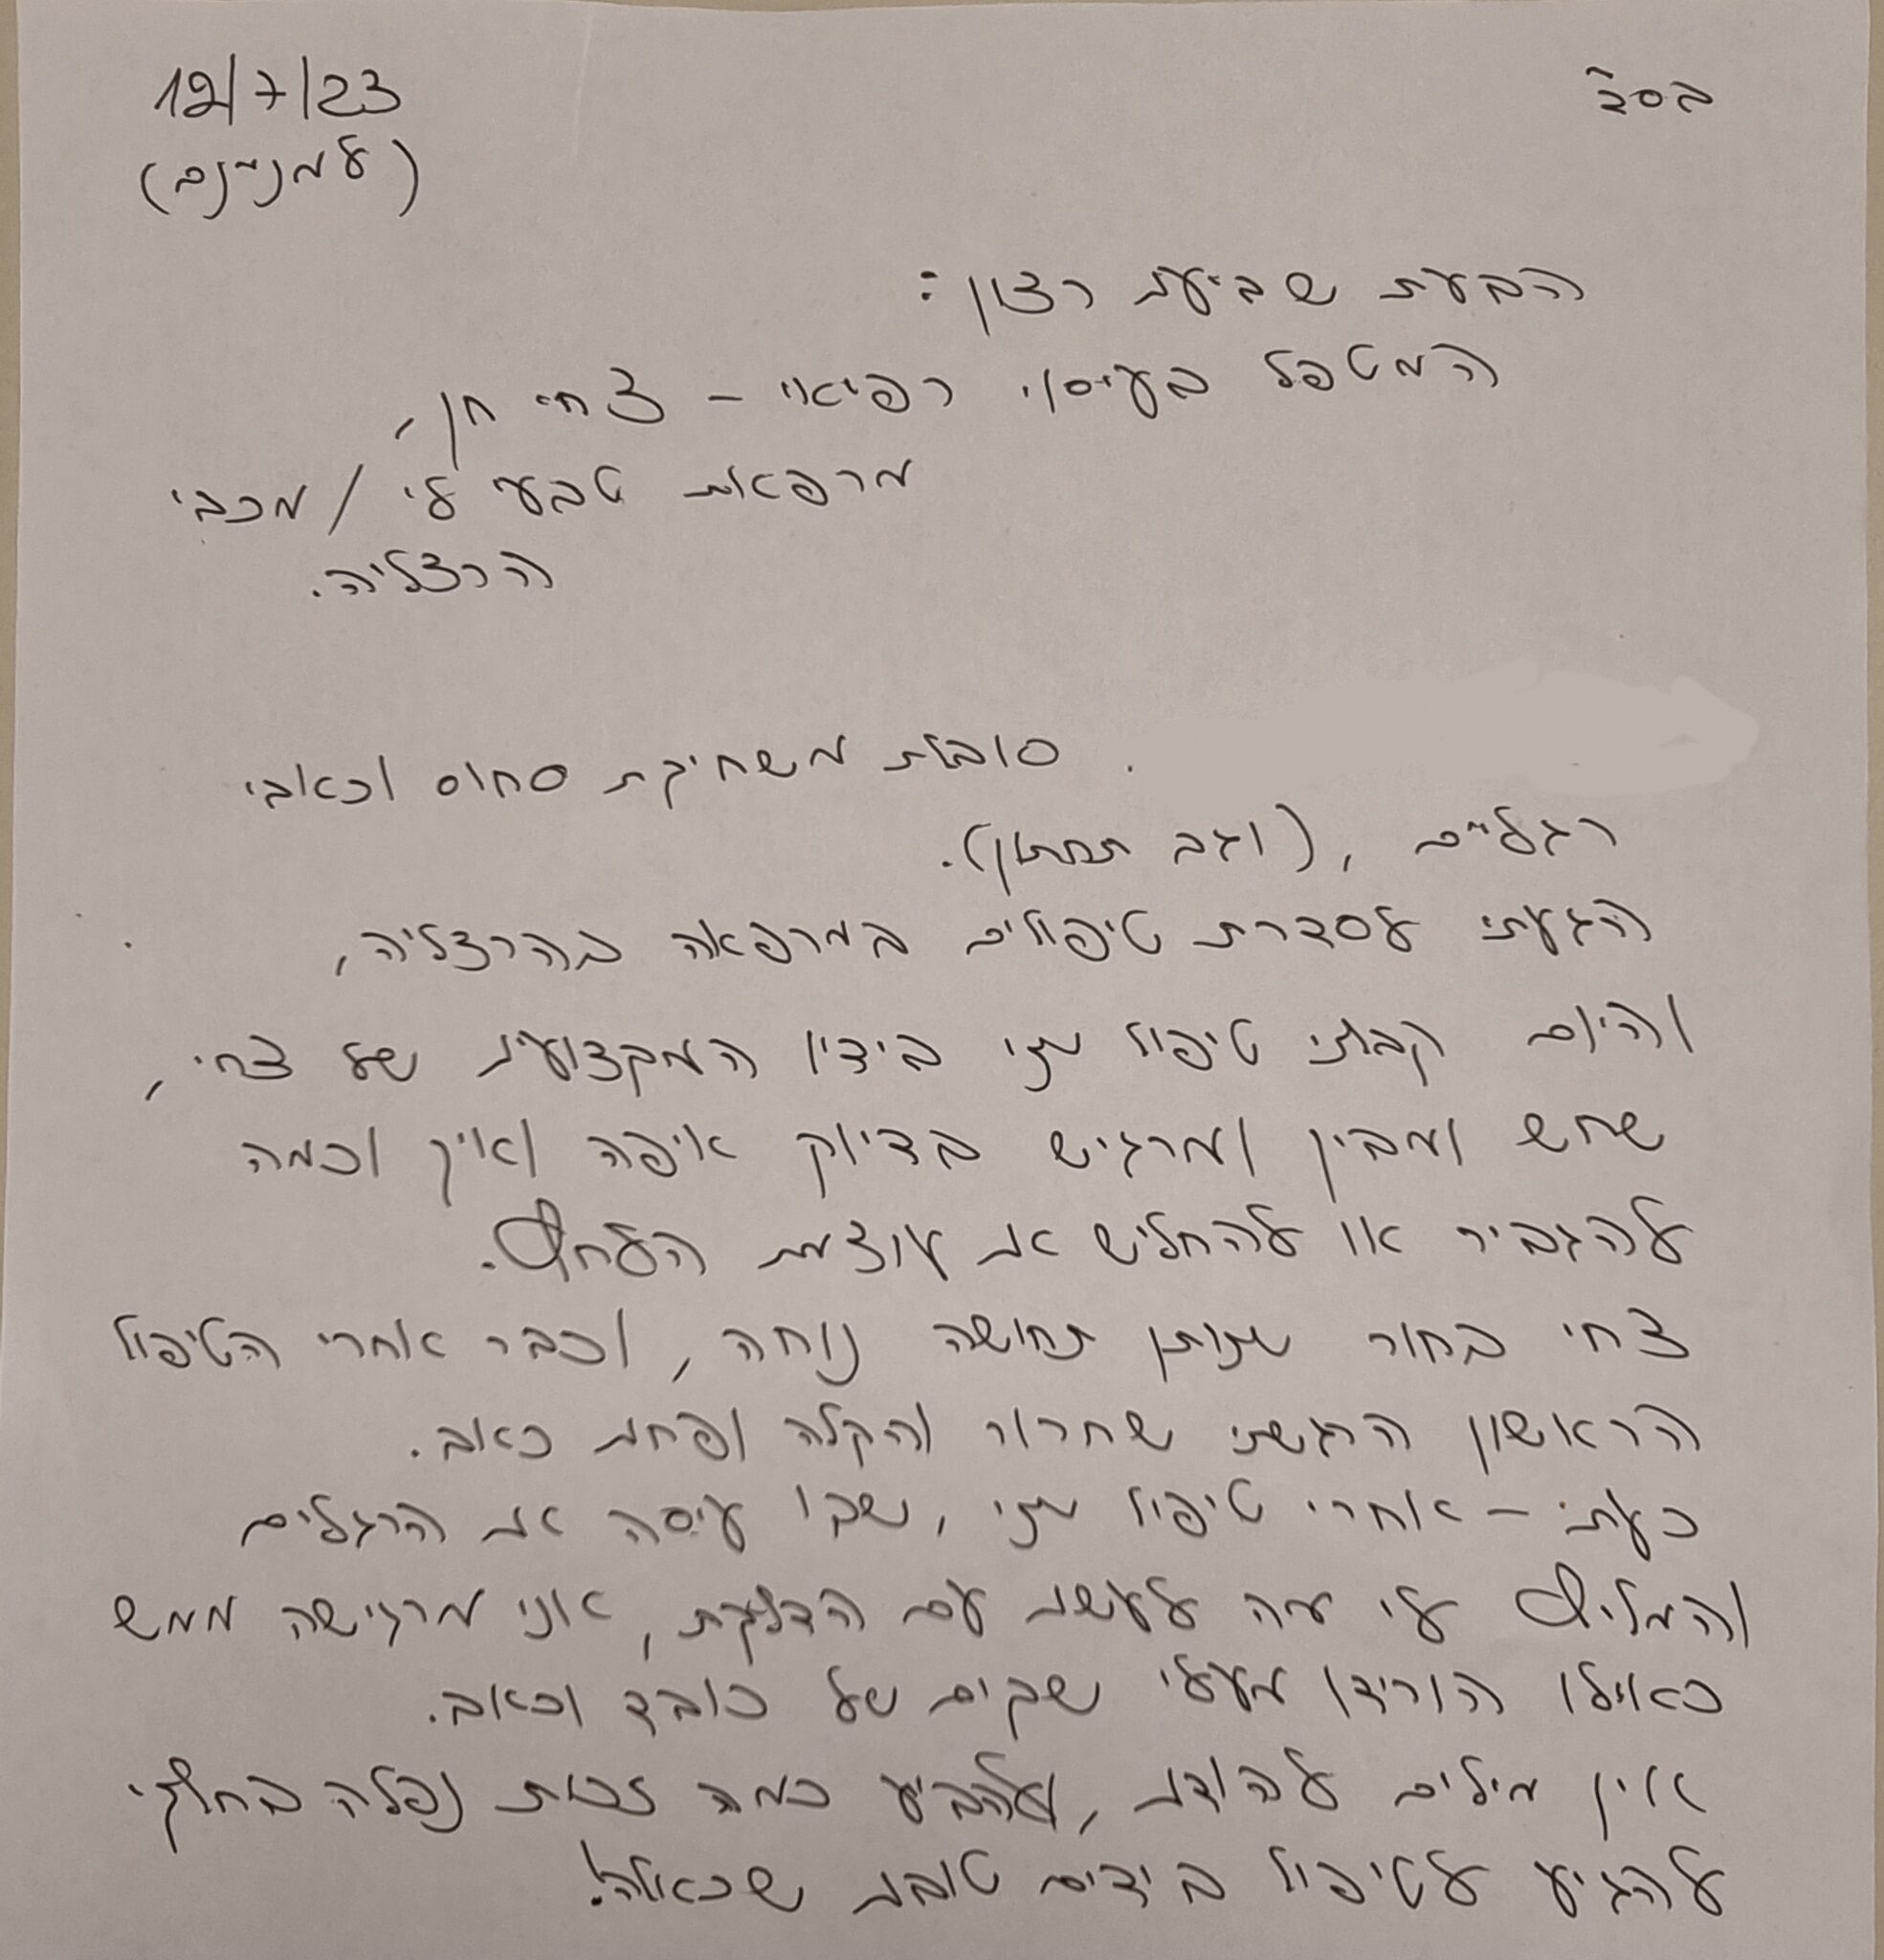 בסד
12/7/23
(למניינם)
הבעת שביעת רצון:
המטפל בעיסוי רפואי - צחי חן,
מרפאת טבעי לי / מכבי
הרצליה.
. סובלת משחיקת סחוס וכאבי
רגליים, (וגב תחתון).
הגעתי לסדרת טיפולים במרפאה בהרצליה,
והיום קבלתי טיפול שני בידיו המקצועיות של צחי,
שחש ומבין ומרגיש בדיוק איפה ואיך וכמה
להגביר או להחליש את עוצמת הלחץ.
צחי בחור שנותן תחושה נוחה, וכבר אחרי הטיפול
הראשון הרגשתי שחרור והקלה ופחת כאב.
כעת - אחרי טיפול שני, שבו עיסה את הרגליים
והמליץ לי מה לעשות עם הדלקת, אני מרגישה ממש
כאילו הורידו מעלי שקים של כובד וכאב.
אין מילים להודות, ולהביע כמה זכות נפלה בחלקי
להגיע לטיפול בידיים טובות שכאלה!